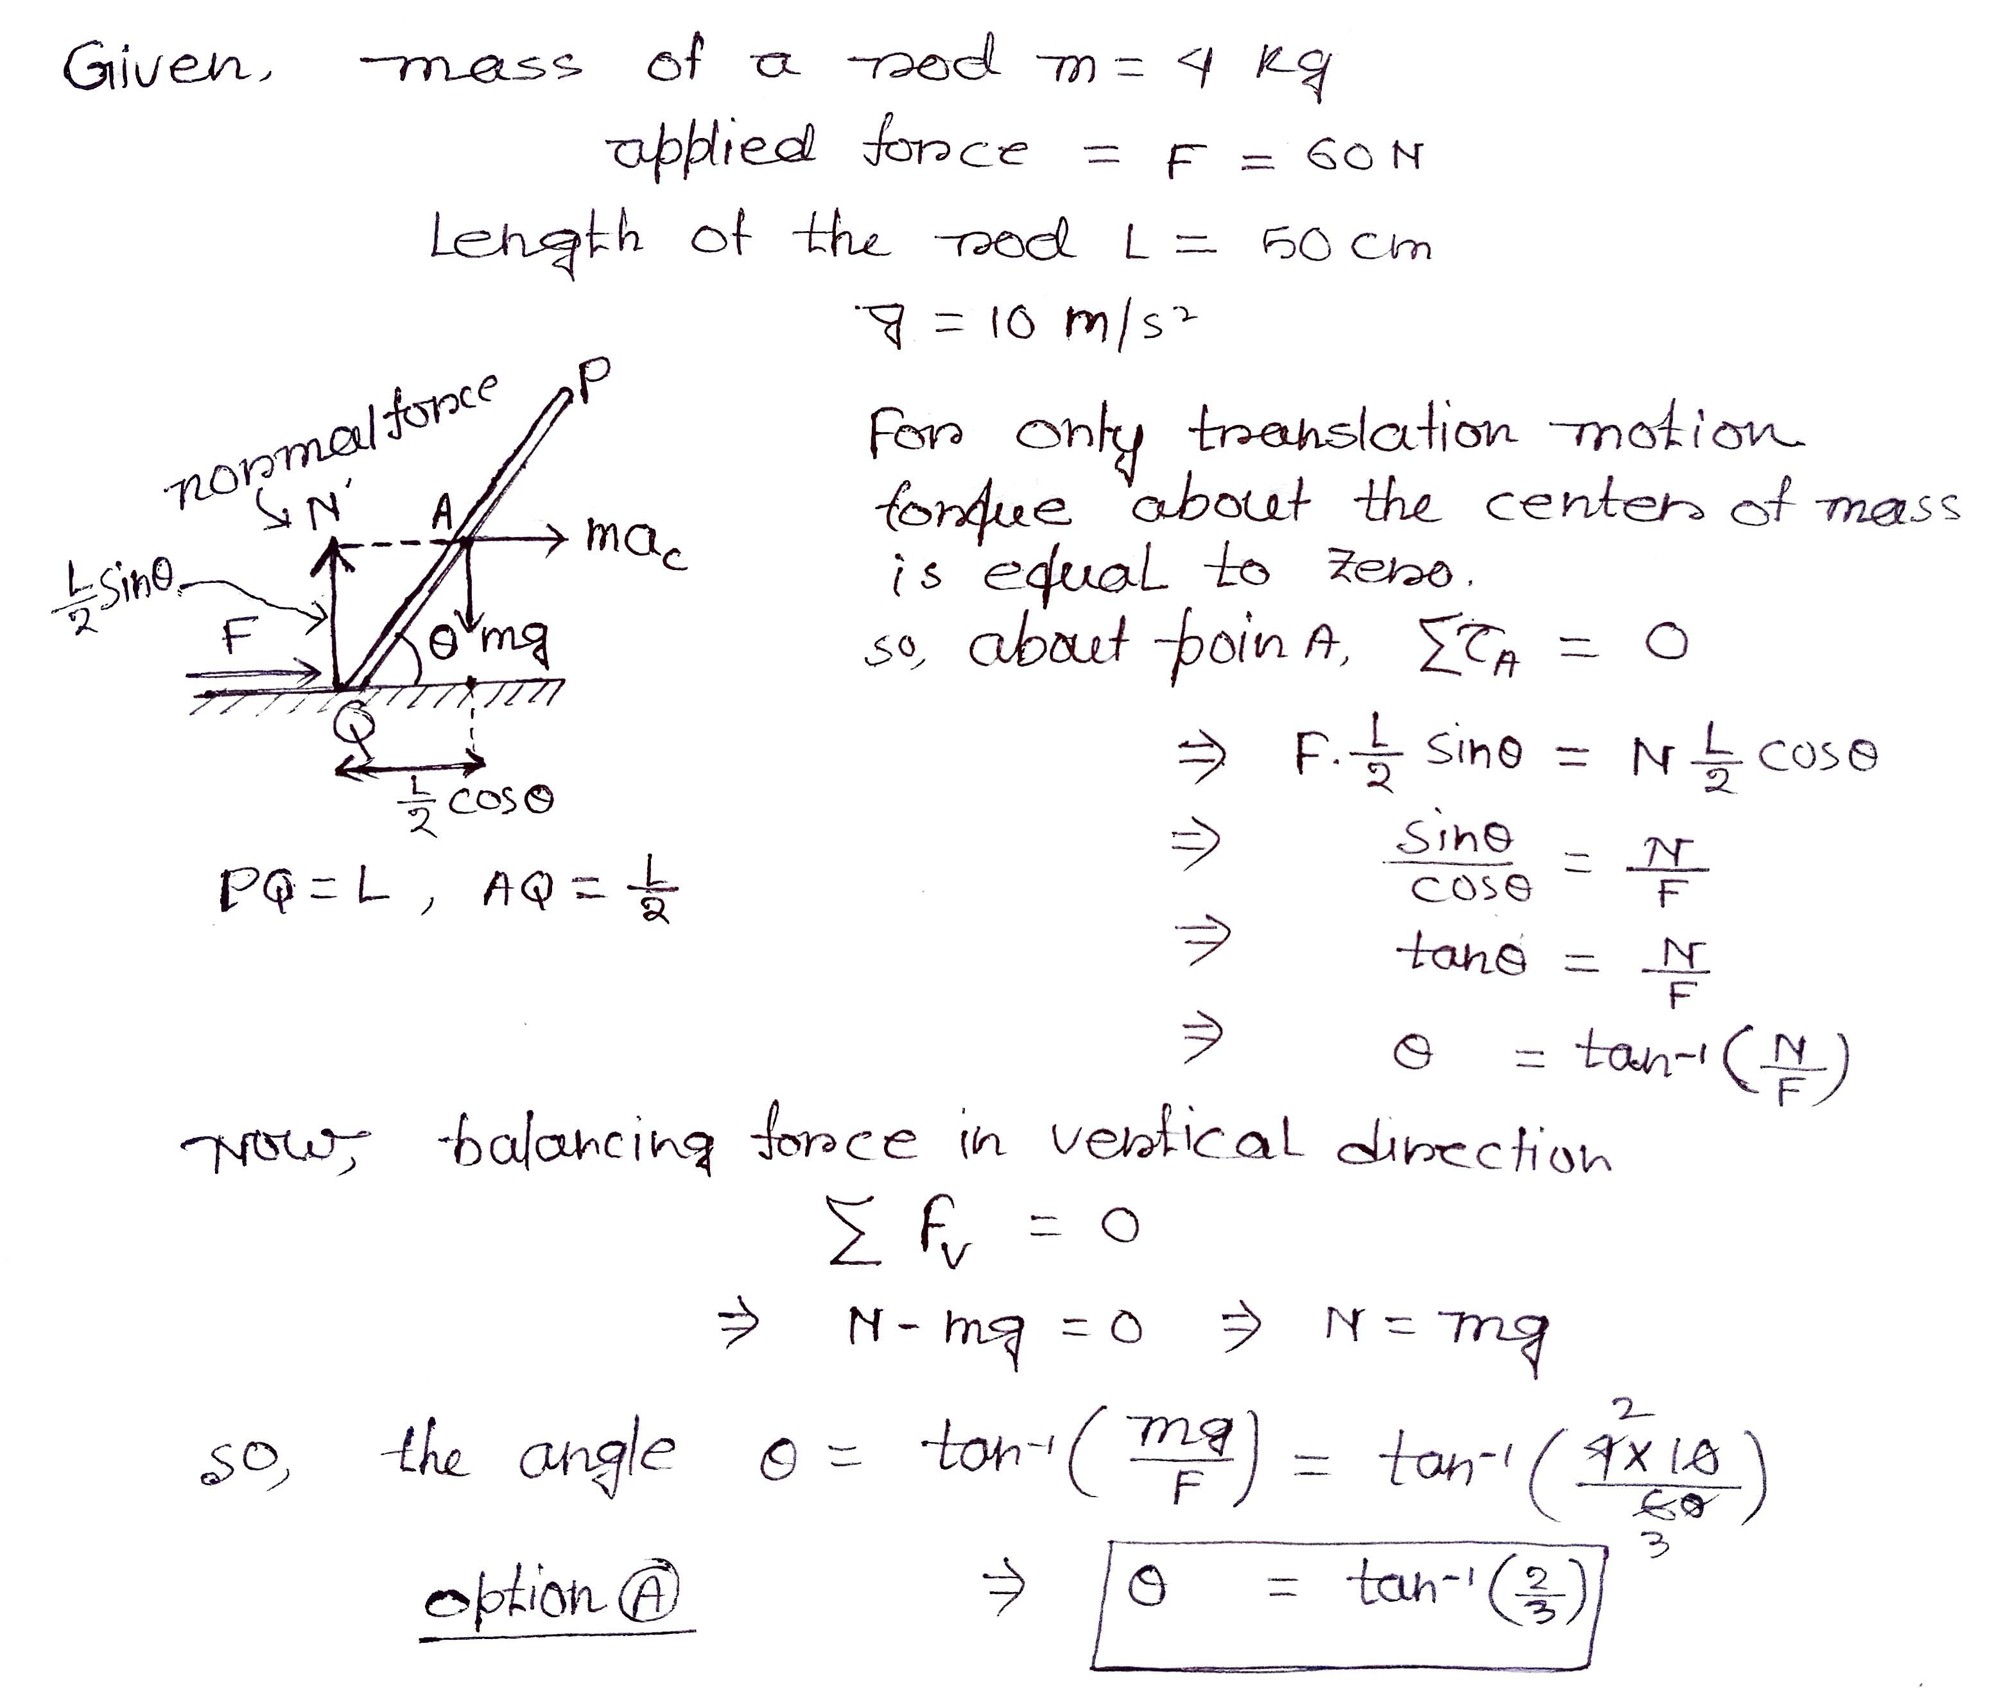 Given, mass of a rod m = 4 kg
applied force = F = 60 N
Length of the rod L = 50 cm
g = 10 m/s²
normal force
N
P
A
ma_c
L/2 sinθ
F
θ
mg
Q
L/2 cosθ
PQ = L, AQ = L/2
For only translation motion
torque about the center of mass
is equal to zero.
so, about poin A, Στ_A = 0
⇒ F. L/2 sinθ = N L/2 cosθ
⇒ sinθ/cosθ = N/F
⇒ tanθ = N/F
⇒ θ = tan⁻¹(N/F)
Now, balancing force in vertical direction
Σ f_v = 0
⇒ N - mg = 0 ⇒ N = mg
so, the angle θ = tan⁻¹(mg/F) = tan⁻¹(4×10/60)
2
3
option Ⓐ ⇒ θ = tan⁻¹(2/3)